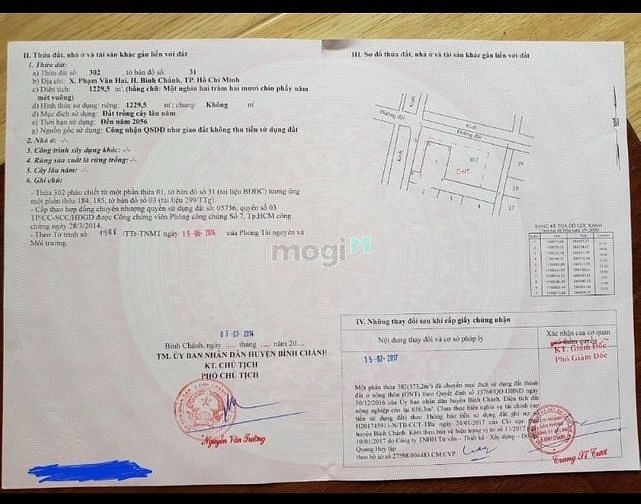 II. Thửa đất, nhà ở và tài sản khác gắn liền với đất
1. Thửa đất:
a) Thửa đất số: 302 , tờ bản đồ số: 31
b) Địa chỉ: X. Phạm Văn Hai, H. Bình Chánh, TP. Hồ Chí Minh
c) Diện tích: 1229,5 m², (bằng chữ: Một nghìn hai trăm hai mươi chín phẩy năm
mét vuông)
d) Hình thức sử dụng: riêng: 1229,5 m²; chung: Không m²
đ) Mục đích sử dụng: Đất trồng cây lâu năm
e) Thời hạn sử dụng: Đến năm 2056
g) Nguồn gốc sử dụng: Công nhận QSDĐ như giao đất không thu tiền sử dụng đất
2. Nhà ở: -/-
3. Công trình xây dựng khác: -/-
4. Rừng sản xuất là rừng trồng: -/-
5. Cây lâu năm: -/-
6. Ghi chú:
- Thửa 302 phân chiết từ một phần thửa 01, tờ bản đồ số 31 (tài liệu BĐĐC) tương ứng
một phần thửa 184, 185, tờ bản đồ số 03 (tài liệu 299/TTg)
- Cấp theo hợp đồng chuyển nhượng quyền sử dụng đất số: 05736, quyển số 03
TP/CC-SCC/HĐGD được Công chứng viên Phòng công chứng Số 7, Tp.HCM công
chứng ngày 28/3/2014.
- Theo Tờ trình số: 1988 /TTr-TNMT ngày 19-06-2014 của Phòng Tài nguyên và
Môi trường.
mogi
03-07-2014
Bình Chánh, ngày.... tháng.... năm 20....
TM. ỦY BAN NHÂN DÂN HUYỆN BÌNH CHÁNH
KT. CHỦ TỊCH
PHÓ CHỦ TỊCH
Nguyễn Văn Tường
III. Sơ đồ thửa đất, nhà ở và tài sản khác gắn liền với đất
Kinh
Đường đất
Đường đất
Kinh
1
302
ONT
BẢNG KÊ TỌA ĐỘ GÓC RANH
IV. Những thay đổi sau khi cấp giấy chứng nhận
Nội dung thay đổi và cơ sở pháp lý
Xác nhận của cơ quan
có thẩm quyền
KT. Giám Đốc
Phó Giám Đốc
15-02-2017
Một phần thửa 302(573,2m²) đã chuyển mục đích sử dụng đất thành
đất ở nông thôn (ONT) theo Quyết định số 13760/QĐ-UBND
30/12/2016 của Ủy ban nhân dân huyện Bình Chánh. Diện tích đất
nông nghiệp còn lại 656,3m². Chưa thực hiện nghĩa vụ tài chính
24/01/2017 của Chi cục
huyện Bình Chánh. Kèm theo bản vẽ hiện trạng vị trí số
10/01/2017 do Công ty TNHH Tư vấn - Thiết kế - Xây dựng -
Quang Huy lập.
theo hồ sơ số 27598.004483.CM.CVP.
Trang Sĩ Tươt